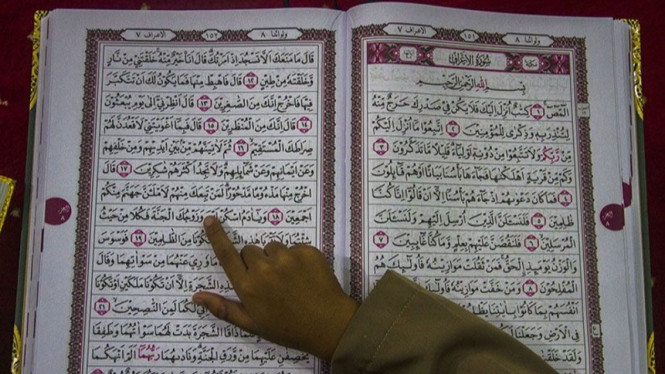 ولو أننا ٨ ١٥١ الأعراف ٧
سُورَةُ الْأَعْرَافِ
بِسْمِ اللَّهِ الرَّحْمَٰنِ الرَّحِيمِ
الٓمٓصٓ ١ كِتَابٌ أُنزِلَ إِلَيْكَ فَلَا يَكُن فِي صَدْرِكَ حَرَجٌ مِّنْهُ
لِتُنذِرَ بِهِ وَذِكْرَىٰ لِلْمُؤْمِنِينَ ٢ اتَّبِعُوا مَا أُنزِلَ إِلَيْكُم
مِّن رَّبِّكُمْ وَلَا تَتَّبِعُوا مِن دُونِهِ أَوْلِيَاءَ قَلِيلًا مَّا تَذَكَّرُونَ ٣
وَكَم مِّن قَرْيَةٍ أَهْلَكْنَاهَا فَجَاءَهَا بَأْسُنَا بَيَاتًا أَوْ هُمْ قَائِلُونَ
٤ فَمَا كَانَ دَعْوَاهُمْ إِذْ جَاءَهُم بَأْسُنَا إِلَّا أَن قَالُوا إِنَّا كُنَّا
ظَالِمِينَ ٥ فَلَنَسْأَلَنَّ الَّذِينَ أُرْسِلَ إِلَيْهِمْ وَلَنَسْأَلَنَّ
الْمُرْسَلِينَ ٦ فَلَنَقُصَّنَّ عَلَيْهِم بِعِلْمٍ وَمَا كُنَّا غَائِبِينَ ٧
وَالْوَزْنُ يَوْمَئِذٍ الْحَقُّ فَمَن ثَقُلَتْ مَوَازِينُهُ فَأُولَٰئِكَ هُمُ
الْمُفْلِحُونَ ٨ وَمَنْ خَفَّتْ مَوَازِينُهُ فَأُولَٰئِكَ
أَنفُسَهُم بِمَا كَانُوا بِآيَاتِنَا
فِي الْأَرْضِ وَجَعَلْنَا
وَلَقَدْ خَلَقْنَاكُمْ
ولو أننا ٨ ١٥٢ الأعراف ٧
قَالَ مَا مَنَعَكَ أَلَّا تَسْجُدَ إِذْ أَمَرْتُكَ قَالَ أَنَا خَيْرٌ مِّنْهُ خَلَقْتَنِي مِن نَّارٍ
وَخَلَقْتَهُ مِن طِينٍ ١٢ قَالَ فَاهْبِطْ مِنْهَا فَمَا يَكُونُ لَكَ أَن تَتَكَبَّرَ
فِيهَا فَاخْرُجْ إِنَّكَ مِنَ الصَّاغِرِينَ ١٣ قَالَ أَنظِرْنِي إِلَىٰ يَوْمِ يُبْعَثُونَ
١٤ قَالَ إِنَّكَ مِنَ الْمُنظَرِينَ ١٥ قَالَ فَبِمَا أَغْوَيْتَنِي لَأَقْعُدَنَّ لَهُمْ
صِرَاطَكَ الْمُسْتَقِيمَ ١٦ ثُمَّ لَآتِيَنَّهُم مِّن بَيْنِ أَيْدِيهِمْ وَمِنْ خَلْفِهِمْ
وَعَنْ أَيْمَانِهِمْ وَعَن شَمَائِلِهِمْ وَلَا تَجِدُ أَكْثَرَهُمْ شَاكِرِينَ ١٧ قَالَ
اخْرُجْ مِنْهَا مَذْءُومًا مَّدْحُورًا لَّمَن تَبِعَكَ مِنْهُمْ لَأَمْلَأَنَّ جَهَنَّمَ مِنكُمْ
أَجْمَعِينَ ١٨ وَيَا آدَمُ اسْكُنْ أَنتَ وَزَوْجُكَ الْجَنَّةَ فَكُلَا مِنْ حَيْثُ
شِئْتُمَا وَلَا تَقْرَبَا هَٰذِهِ فَتَكُونَا مِنَ الظَّالِمِينَ ١٩ فَوَسْوَسَ
مَا وُورِيَ عَنْهُمَا مِن سَوْآتِهِمَا وَقَالَ
الشَّجَرَةِ إِلَّا أَن تَكُونَا مَلَكَيْنِ أَوْ تَكُونَا
إِنِّي لَكُمَا لَمِنَ النَّاصِحِينَ ٢١
ذَاقَا الشَّجَرَةَ بَدَتْ لَهُمَا سَوْآتُهُمَا وَطَفِقَا
يَخْصِفَانِ عَلَيْهِمَا مِن وَرَقِ الْجَنَّةِ وَنَادَاهُمَا رَبُّهُمَا أَلَمْ أَنْهَكُمَا